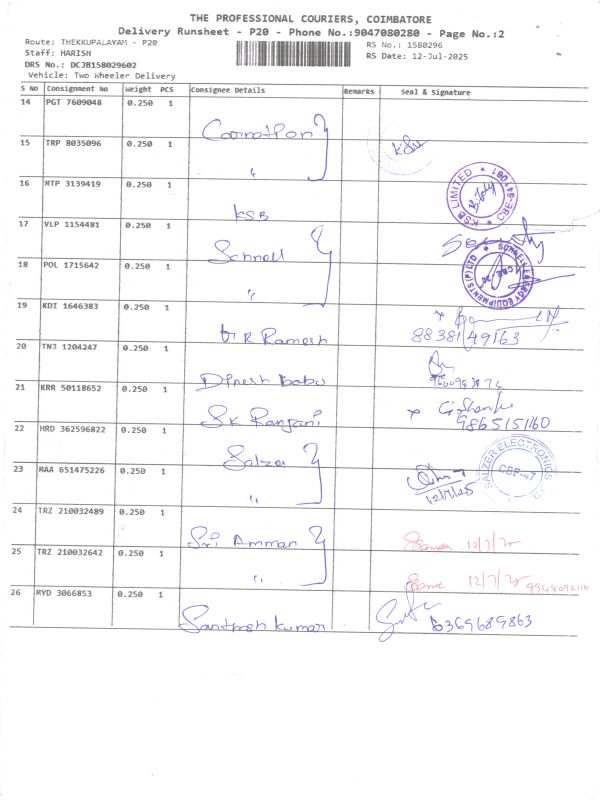 THE PROFESSIONAL COURIERS, COIMBATORE
Delivery Runsheet - P20 - Phone No.:9047080280 - Page No.:2
Route: THEKKUPALAYAM - P20
RS No.: 1580296
Staff: HARISH
RS Date: 12-Jul-2025
DRS No.: DCJB158029602
Vehicle: Two Wheeler Delivery
S No Consignment No Weight PCS Consignee Details Remarks Seal & Signature
14 PGT 7609048 0.250 1
15 TRP 8035096 0.250 1
"
16 MTP 3139419 0.250 1 KSB
KSB LIMITED * CBE-641001 *
17 VLP 1154481 0.250 1 Sonnell
18 POL 1715642 0.250 1 "
SONNELL ENERGY EQUIPMENTS (P) LTD * CBE
19 KDI 1646383 0.250 1 R Ramesh 88381 49163
20 TNJ 1204247 0.250 1 Dinesh babu
21 KRR 50118652 0.250 1 SK Ranjani 9865151160
22 HRD 362596822 0.250 1 Salzer
23 MAA 651475226 0.250 1 " 12/7/25
SALZER ELECTRONICS CBE-47
24 TRZ 210032489 0.250 1 Sri Amman 12/7/25
25 TRZ 210032642 0.250 1 " 12/7/25 9944092110
26 MYD 3066853 0.250 1 Santhosh kumar 6369689863